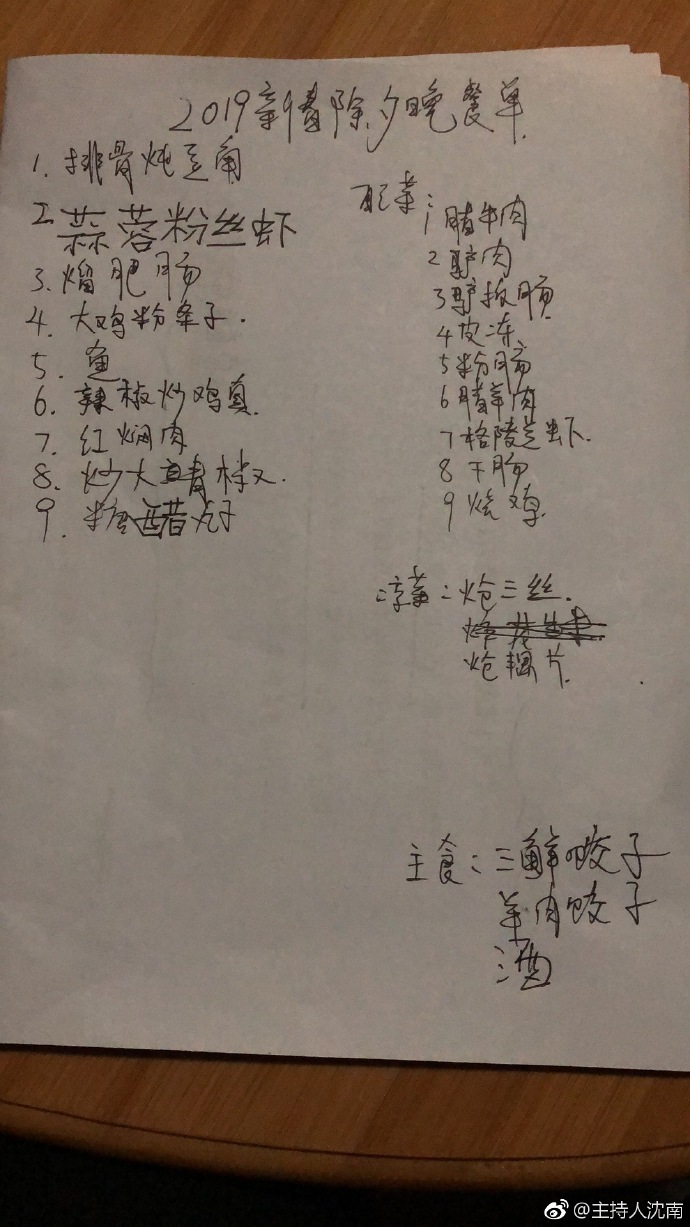 2019新春除夕晚餐单
1. 排骨炖豆角
2 蒜蓉粉丝虾
3. 熘肥肠
4. 大鸡粉条子.
5. 鱼
6. 辣椒炒鸡真.
7. 红焖肉
8. 炒大直青椒
9. 糖醋丸子
配菜:
1 腊牛肉
2 驴肉
3 驴板肠
4 皮冻
5 粉肠
6 腊羊肉
7 格陵兰虾.
8 干肠
9 烧鸡
凉菜: 炝三丝.
炝耦片.
主食: 三鲜饺子
羊肉饺子
酒
@主持人沈南